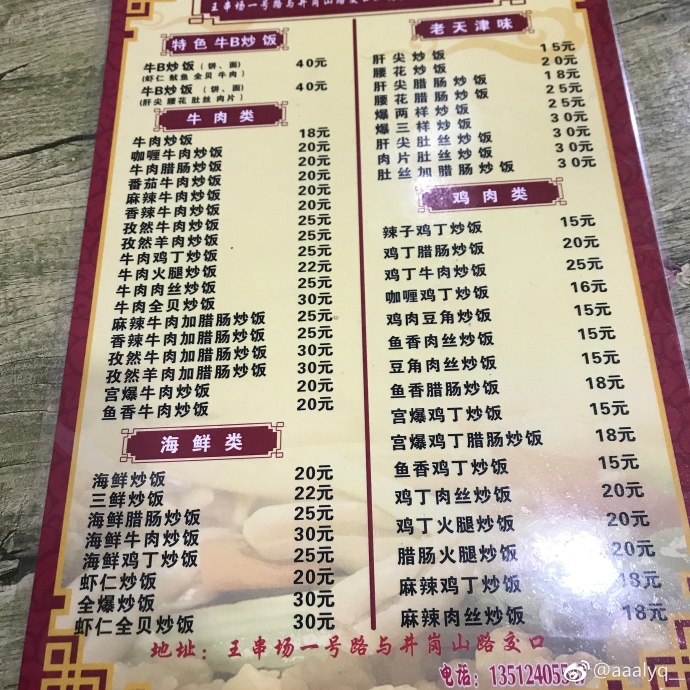 王串场一号路与井岗山路交口
特色 牛B炒饭
牛B炒饭（饼、面） 40元
(虾仁 鱿鱼 全贝 牛肉)
牛B炒饭（饼、面） 40元
(肝尖 腰花 肚丝 肉片)
牛 肉 类
牛肉炒饭 18元
咖喱牛肉炒饭 20元
牛肉腊肠炒饭 20元
番茄牛肉炒饭 20元
麻辣牛肉炒饭 20元
香辣牛肉炒饭 20元
孜然牛肉炒饭 25元
孜然羊肉炒饭 25元
牛肉鸡丁炒饭 25元
牛肉火腿炒饭 22元
牛肉肉丝炒饭 25元
牛肉全贝炒饭 30元
麻辣牛肉加腊肠炒饭 25元
香辣牛肉加腊肠炒饭 25元
孜然牛肉加腊肠炒饭 30元
孜然羊肉加腊肠炒饭 30元
宫爆牛肉炒饭 20元
鱼香牛肉炒饭 20元
海 鲜 类
海鲜炒饭 20元
三鲜炒饭 22元
海鲜腊肠炒饭 25元
海鲜牛肉炒饭 30元
海鲜鸡丁炒饭 25元
虾仁炒饭 20元
全爆炒饭 30元
虾仁全贝炒饭 30元
老 天 津 味
肝尖炒饭 15元
腰花炒饭 20元
肝尖腊肠炒饭 18元
腰花腊肠炒饭 25元
爆两样炒饭 25元
爆三样炒饭 30元
肝尖肚丝炒饭 30元
肉片肚丝炒饭 30元
肚丝加腊肠炒饭 30元
鸡 肉 类
辣子鸡丁炒饭 15元
鸡丁腊肠炒饭 20元
鸡丁牛肉炒饭 25元
咖喱鸡丁炒饭 16元
鸡肉豆角炒饭 15元
鱼香肉丝炒饭 15元
豆角肉丝炒饭 15元
鱼香腊肠炒饭 18元
宫爆鸡丁炒饭 15元
宫爆鸡丁腊肠炒饭 18元
鱼香鸡丁炒饭 15元
鸡丁肉丝炒饭 20元
鸡丁火腿炒饭 20元
腊肠火腿炒饭 20元
麻辣鸡丁炒饭 18元
麻辣肉丝炒饭 18元
地址：王串场一号路与井岗山路交口
电话：13512405
@aaalyq_